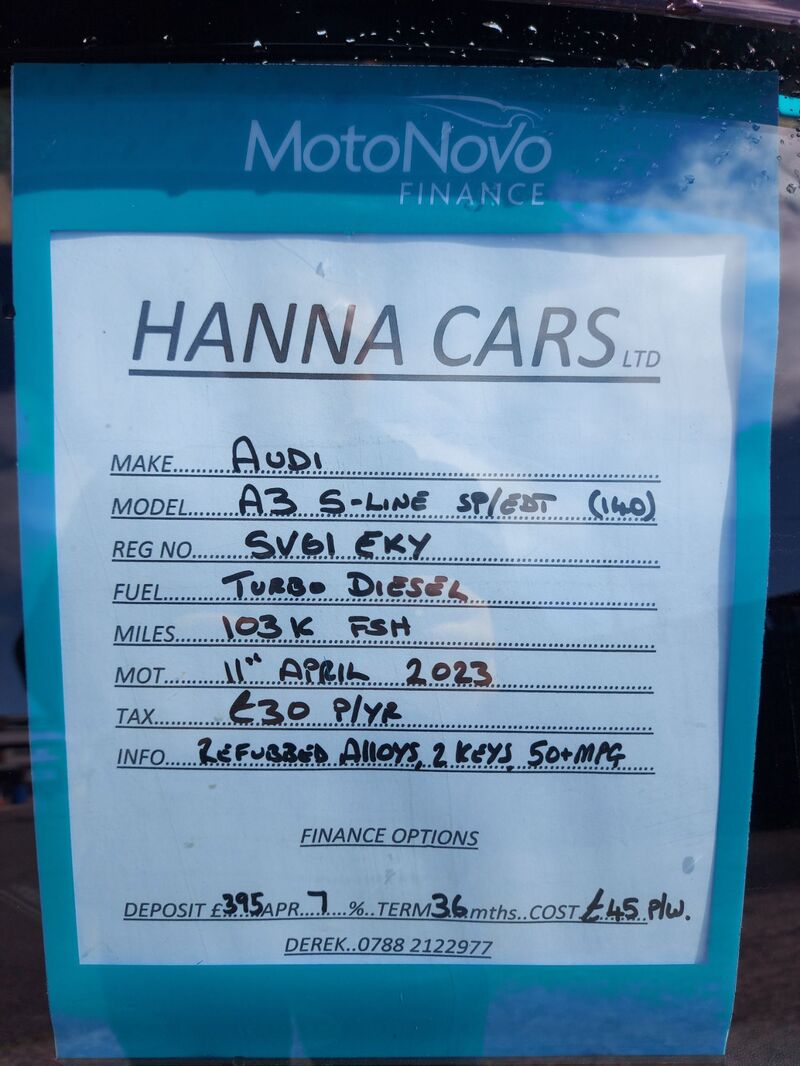 MotoNovo
FINANCE
HANNA CARS LTD
MAKE......AUDI
MODEL......A3 S-LINE SP/EDT (140)
REG NO......SV61 EKY
FUEL......TURBO DIESEL
MILES......103K FSH
MOT......11TH APRIL 2023
TAX......£30 P/YR
INFO......REFUBBED ALLOYS, 2 KEYS, 50+MPG
FINANCE OPTIONS
DEPOSIT £395 APR...7...%..TERM 36 mths..COST £45 P/W.
DEREK..0788 2122977